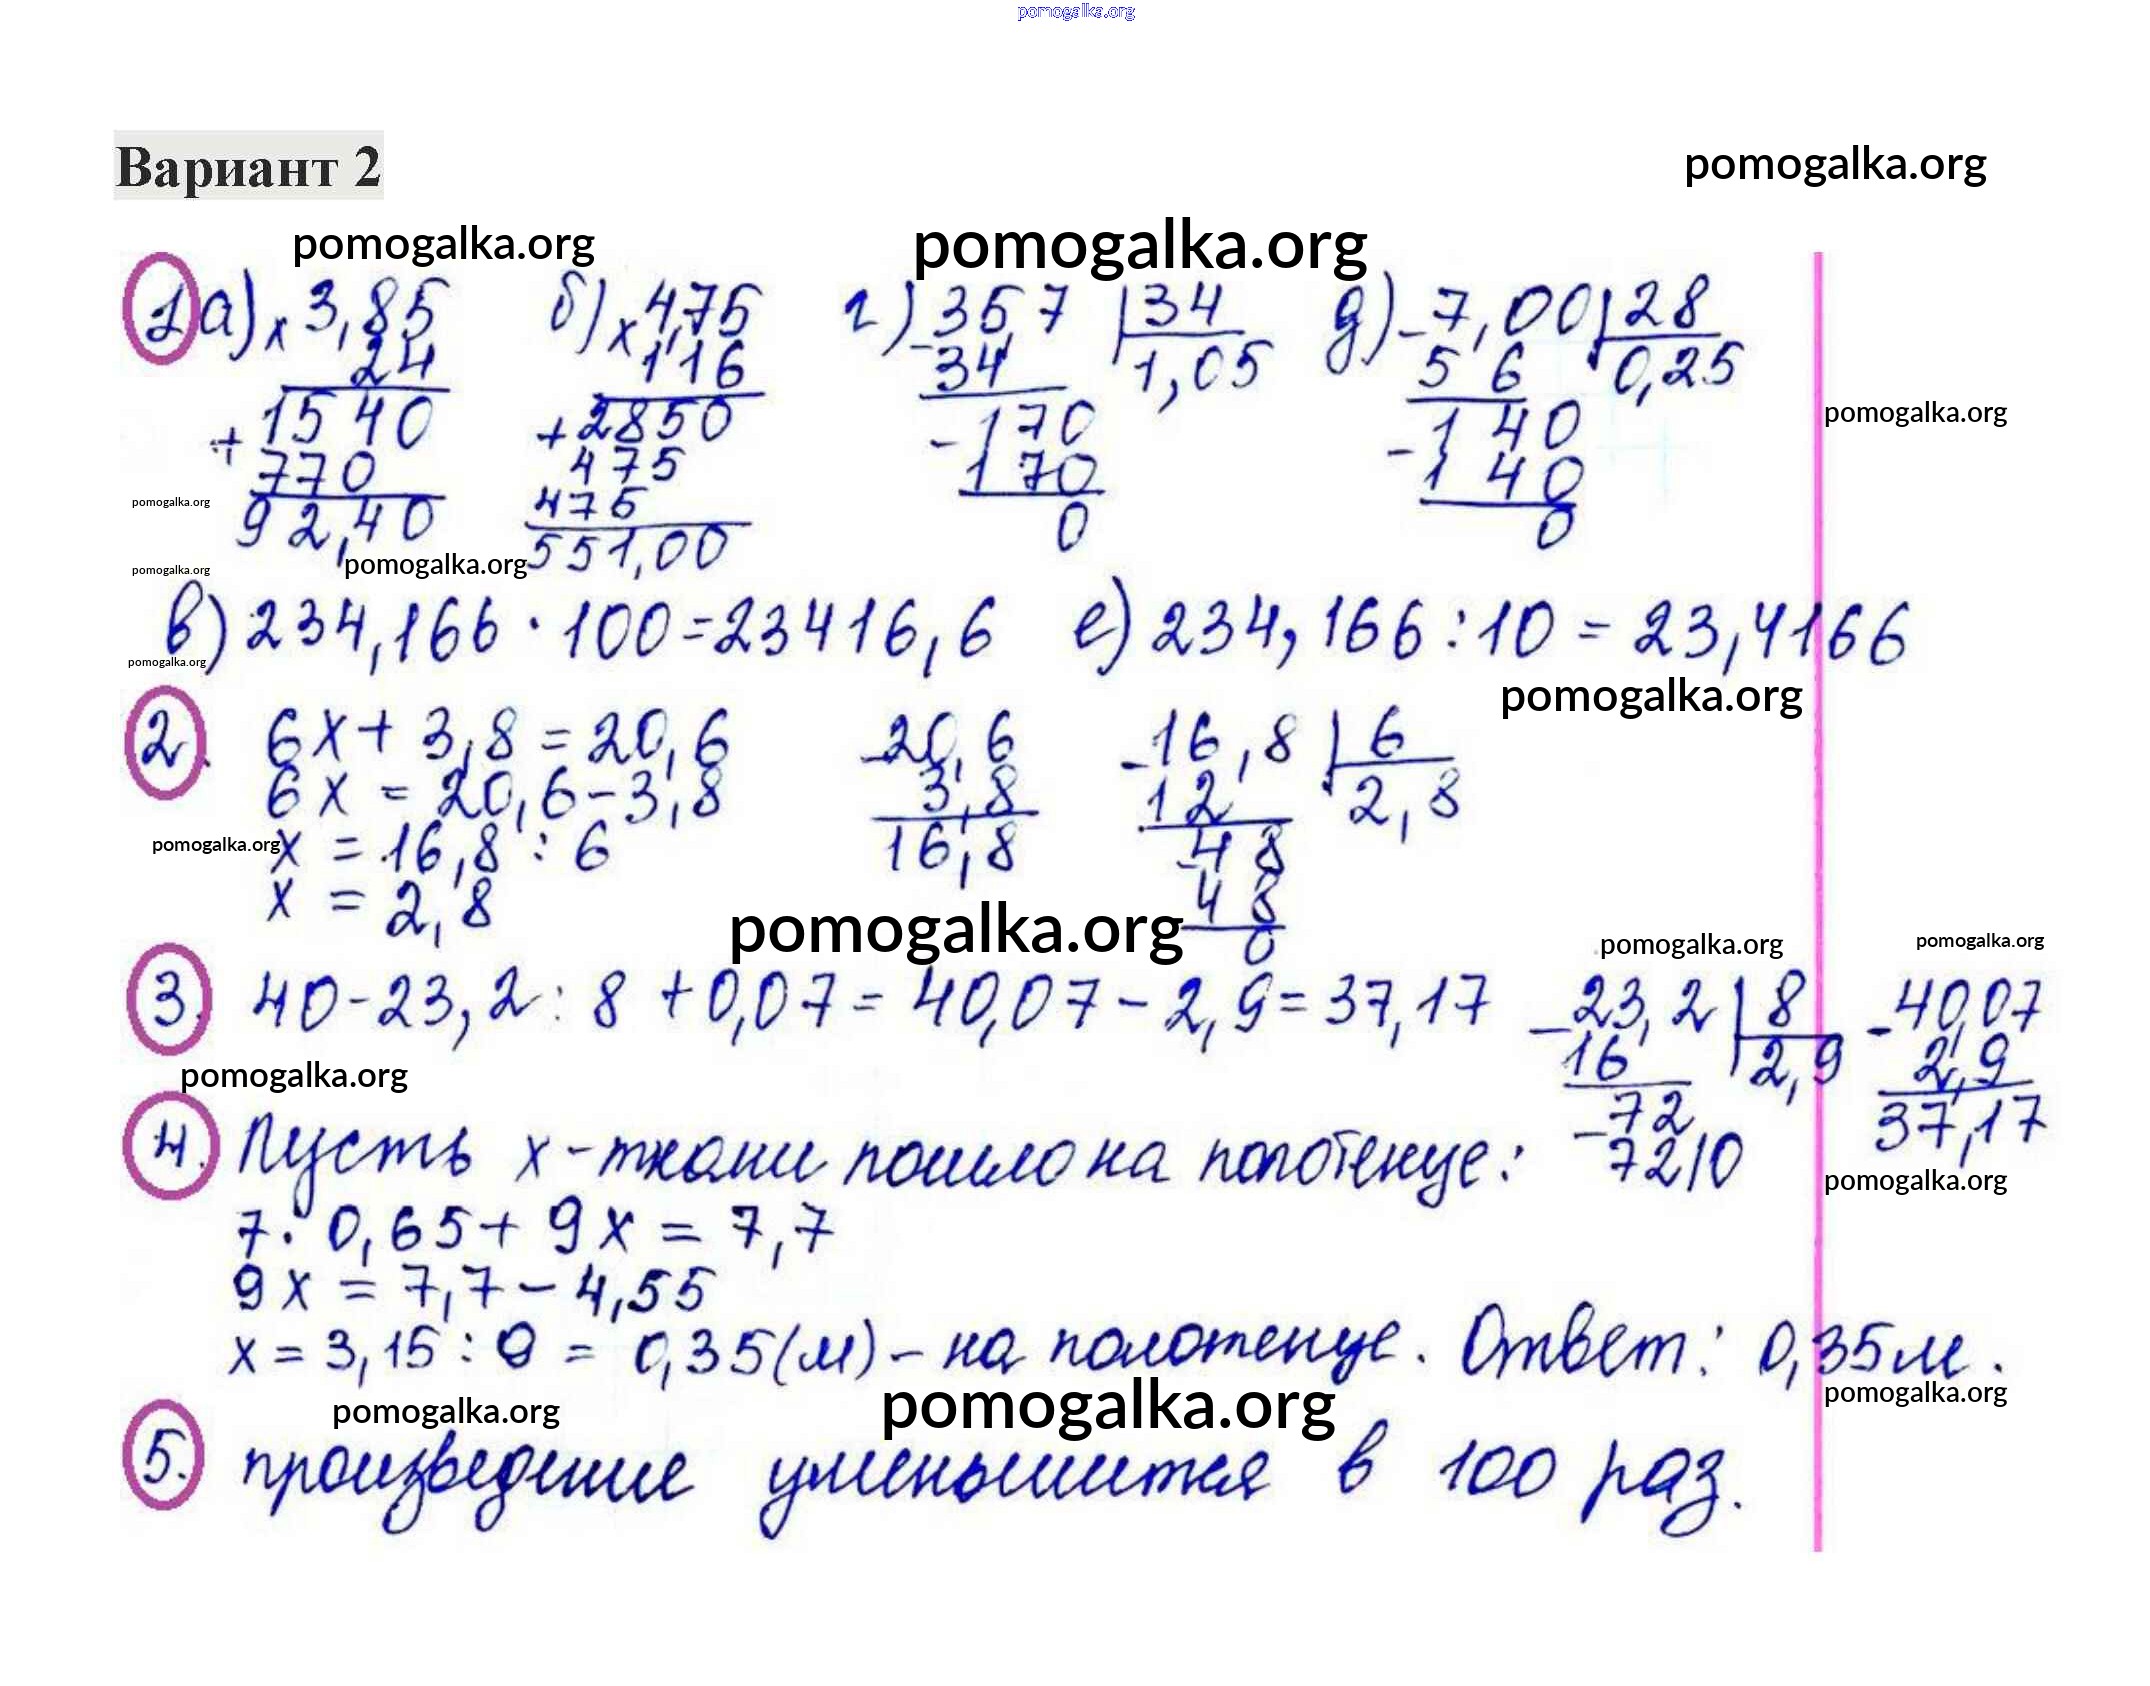 pomogalka.org
Вариант 2
pomogalka.org
pomogalka.org
pomogalka.org
1 а) × 3,85
24
+ 1540
770
92,40
б) × 4,75
116
+ 2850
475
475
551,00
г) - 35,7 | 34
34 1,05
- 170
170
0
д) - 7,00 | 28
5 6 0,25
- 1 40
1 40
0
pomogalka.org
pomogalka.org
pomogalka.org
pomogalka.org
в) 234,166 · 100 = 23416,6 е) 234,166 : 10 = 23,4166
pomogalka.org
pomogalka.org
2. 6х + 3,8 = 20,6
6х = 20,6 - 3,8
х = 16,8 : 6
х = 2,8
- 20,6
3,8
16,8
- 16,8 | 6
12 2,8
- 48
48
0
pomogalka.org
pomogalka.org
pomogalka.org
pomogalka.org
3. 40 - 23,2 : 8 + 0,07 = 40,07 - 2,9 = 37,17
- 23,2 | 8
16 2,9
- 72
72 | 0
- 40,07
2,9
37,17
pomogalka.org
4. Пусть х - ткани пошло на полотенце:
pomogalka.org
7 · 0,65 + 9х = 7,7
9х = 7,7 - 4,55
х = 3,15 : 9 = 0,35 (м) - на полотенце. Ответ: 0,35 м.
pomogalka.org
pomogalka.org
pomogalka.org
5. произведение уменьшится в 100 раз.